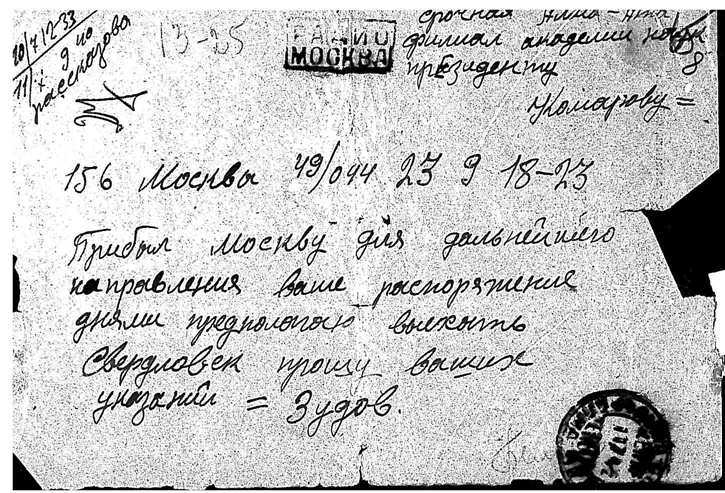 10/X 12-33
9 40
11/X рассказова
13-25
РАДИО
МОСКВА
срочная Алма-Ата
филиал академии наук
президенту
8
Комарову =
156 Москвы 49/094 23 9 18-23
Прибыл Москву для дальнейшего
направления ваше распоряжение
днями предпологаю выехать
Свердловск прошу ваших
указаний = Зудов.